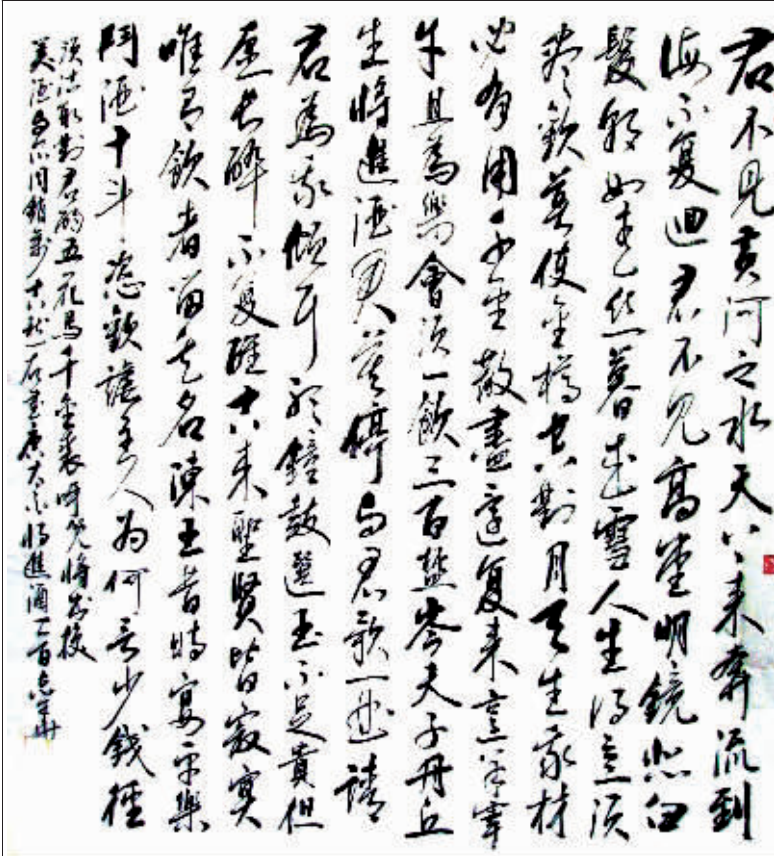 君不見黃河之水天上来奔流到
海不复迴君不見高堂明鏡悲白
髮朝如青丝暮成雪人生得意须
尽歡莫使金樽空對月天生我材
必有用千金散盡還复来烹羊宰
牛且為樂會须一飲三百盃岑夫子丹丘
生將進酒君莫停与君歌一曲請
君為我傾耳聽鐘鼓饌玉不足貴但
愿長醉不复醒古来聖賢皆寂寞
唯有飲者留其名陳王昔時宴平樂
鬥酒十斗恣歡謔主人为何言少錢徑
须沽取對君酌五花馬千金裘呼兒將出换
美酒与尔同銷萬古愁